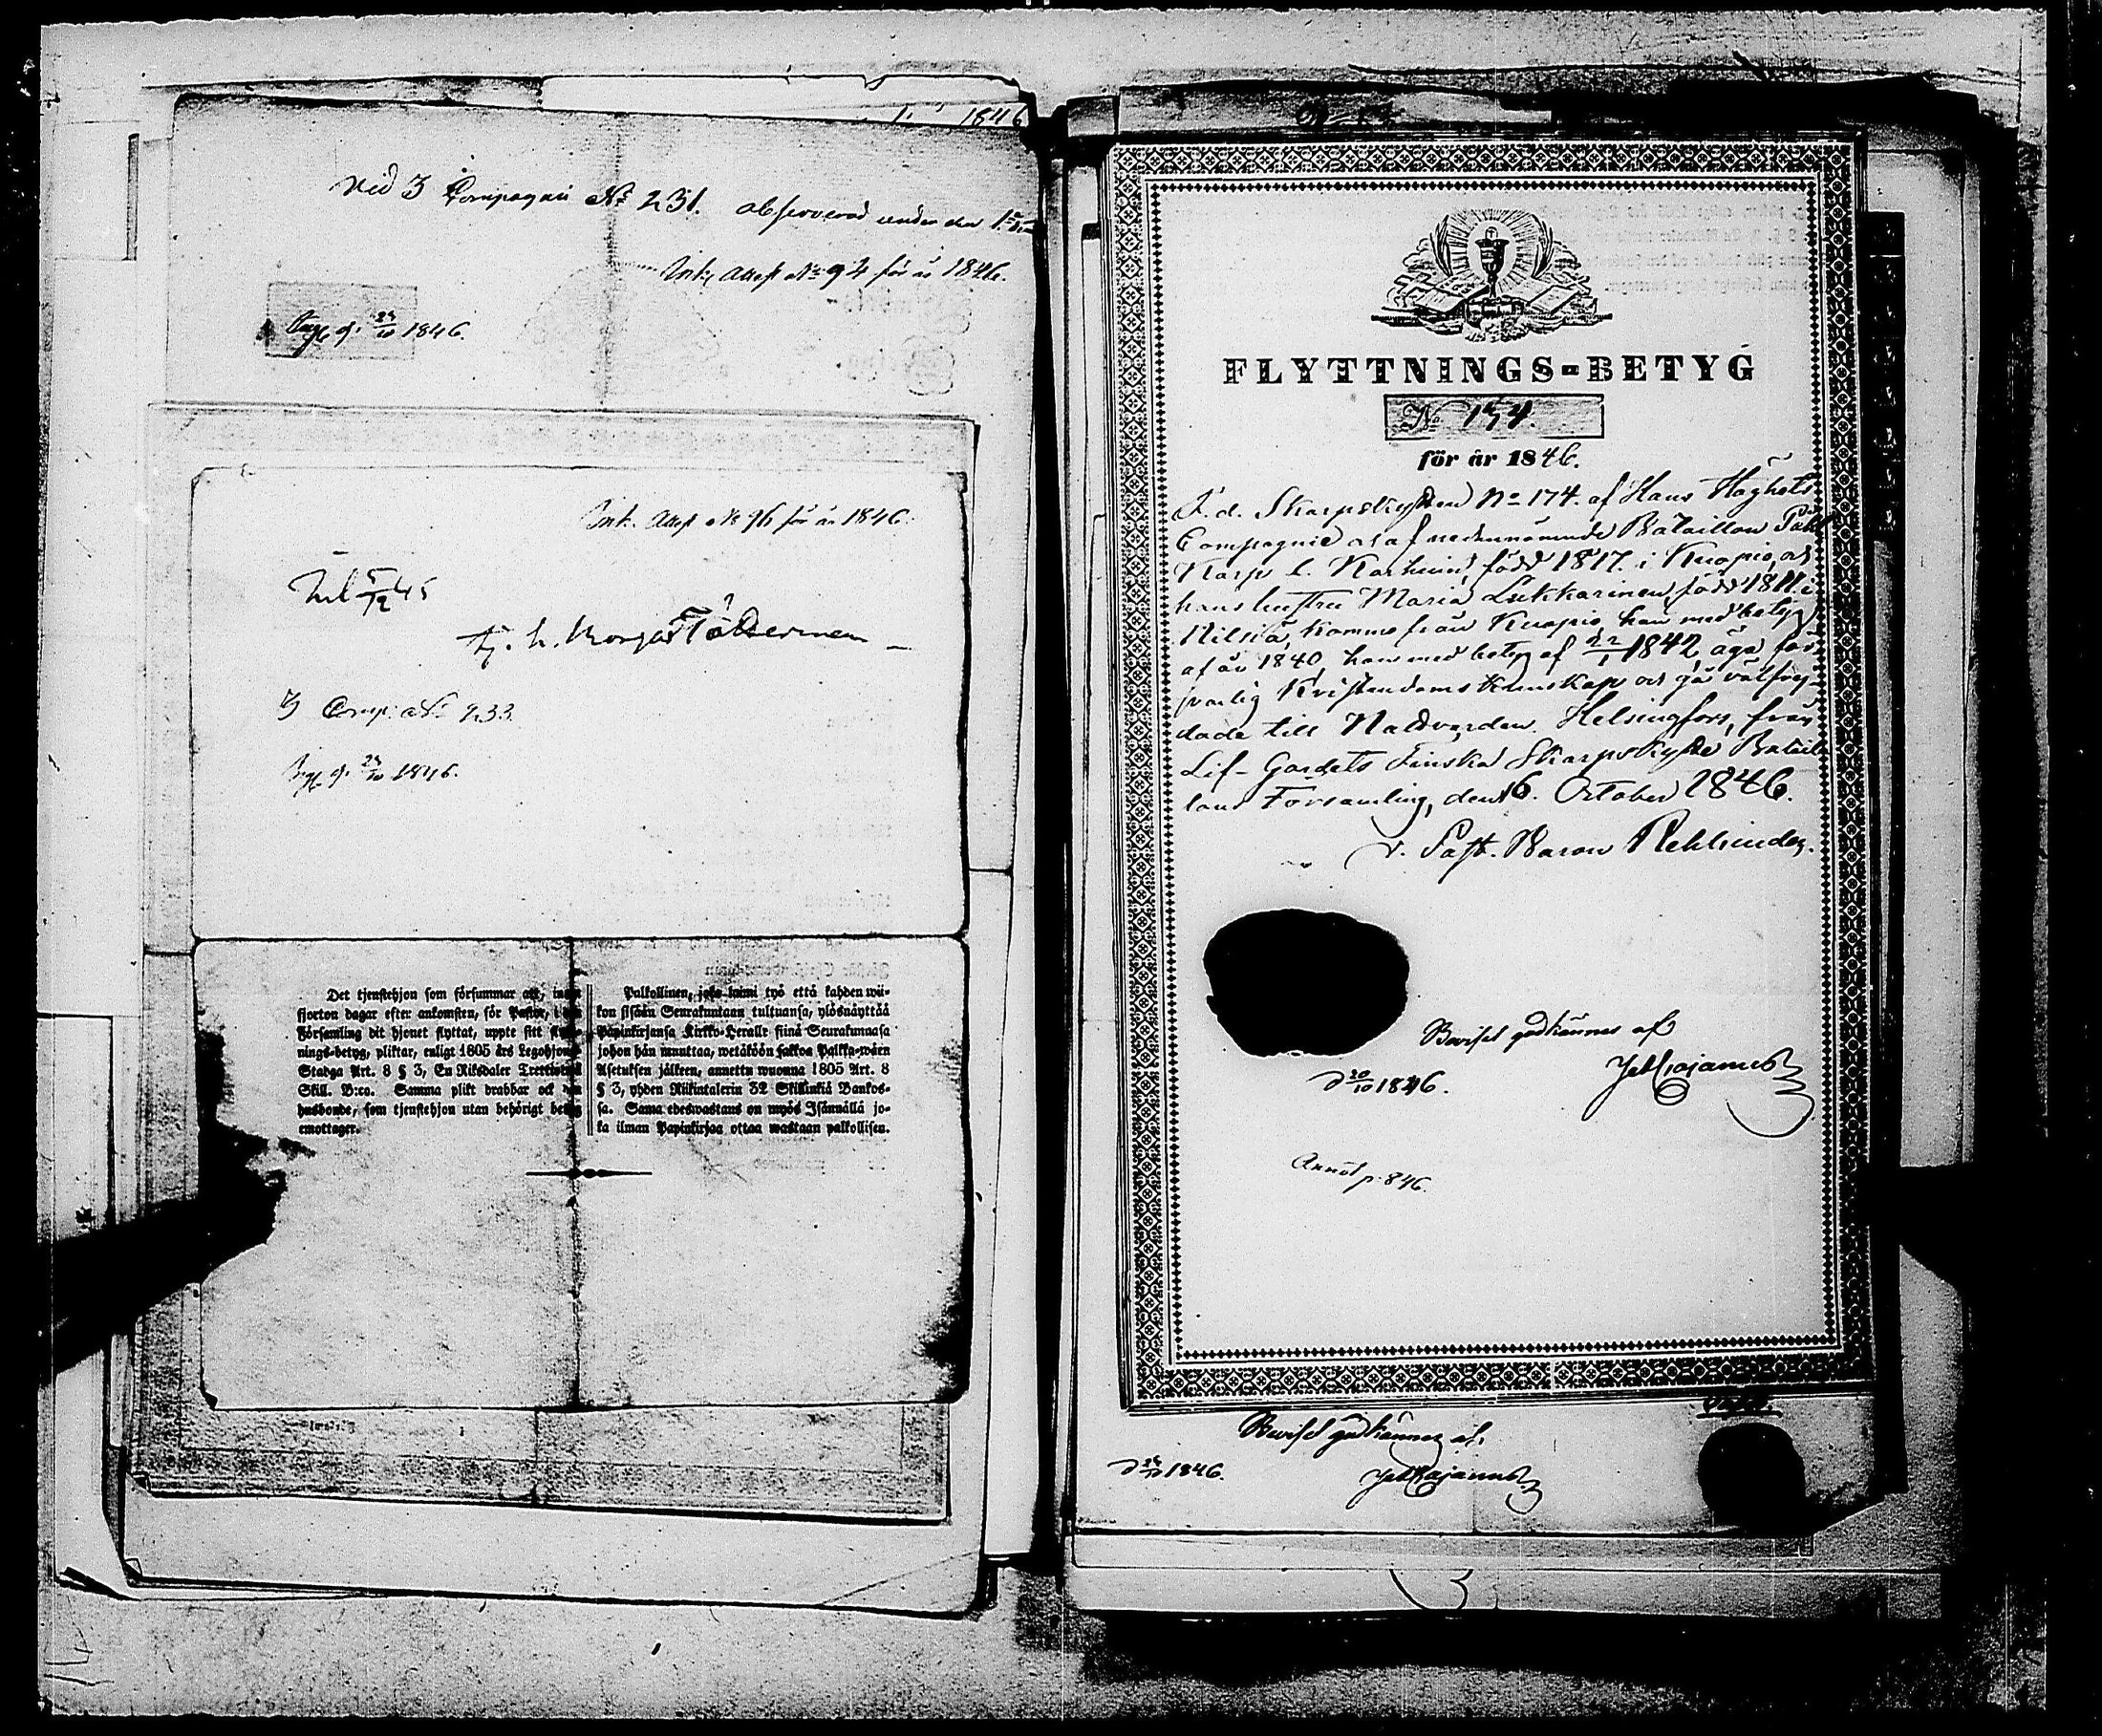 1846
Vid 3 Compagni No 231. observerad under den
Ink. Attest No 94 för år 1846.
29/10 1846.
Ink. Attest No 96 för år 1846.
5/12 45
3 Comp: No 233
29/10 1846.
Det tjenstehjon som försummar att, inom
fjorton dagar efter ankomsten, för Pastor, i den
Församling dit hjonet flyttat, uppte sitt flytt-
nings-betyg, pliktar, enligt 1805 års Legohjons-
Stadga Art. 8 § 3, En Riksdaler Trettiotvå
Skill. B:co. Samma plikt drabbar ock den
husbonde, som tjenstehjon utan behörigt betyg
emottager.
Palkollinen, joka laimi työ että kahden wii-
kon sisään Seurakuntaan tultuansa, ylösnäyttää
Papinkirjansa Kirkko-Herralle siinä Seurakunnasa
johon hän muuttaa, wetäköön sakkoa Palkka-wäen
Asetuksen jälkeen, annettu wuonna 1805 Art. 8
§ 3, yhden Riikintalerin 32 Skillinkiä Bankos-
sa. Sama edeswastaus on myös Isännällä jo-
ka ilman Papinkirjaa ottaa wastaan palkollisen.
FLYTTNINGS-BETYG
No 174.
för år 1846.
F. d. Skarpskytten No 174. af Hans Höghets
Compagnie af nedannämnde Bataillon Påhl
Karp l. Karhuin, född 1817. i Kuopio, och
hans hustru Maria Lukkarinen, född 1811. i
Nilsiä, komne från Kuopio, han med betyg
af år 1840, hon med betyg af 22/1 1842, äga för-
svarlig Kristendoms kunskap och gå välfrej-
dade till Naldvorden. Helsingfors, från
Lif-Gardets Finska Skarpskytte Batail-
lons Församling, den 16. October 1846.
v. Past. Baron Rehbinder.
Beviset godkännes af
d 20/10 1846.
Annot p. 846.
Beviset godkännes af.
1846.